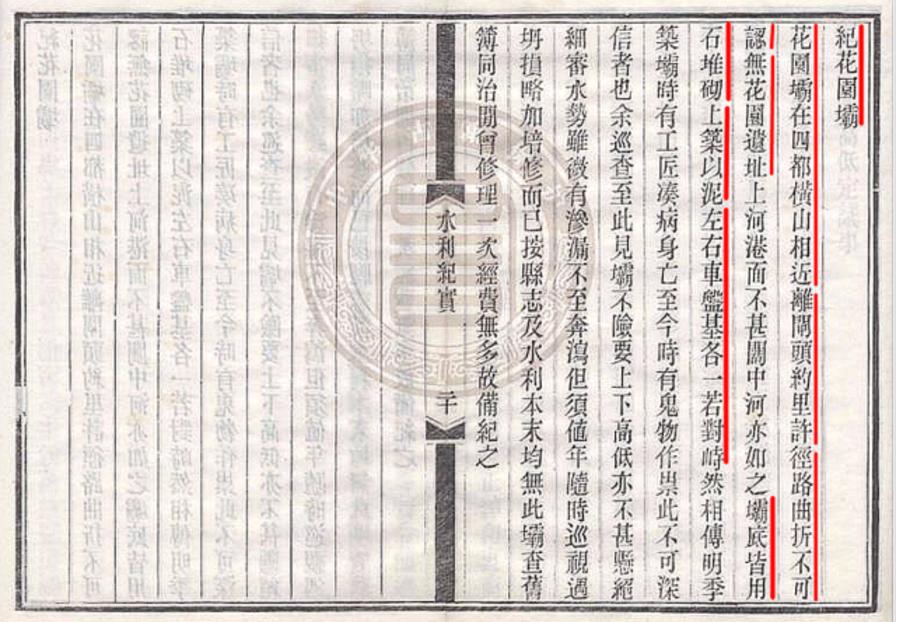 紀花園壩
花園壩在四都橫山相近離閘頭約里許徑路曲折不可
認無花園遺址上河港面不甚闊中河亦如之壩底皆用
石堆砌上築以泥左右車盤基各一若對峙然相傳明季
築壩時有工匠凑病身亡至今時有鬼物作祟此不可深
信者也余巡查至此見壩不險要上下高低亦不甚懸絕
細審水勢雖微有滲漏不至奔瀉但須值年隨時巡視過
坍損略加培修而已按縣志及水利本末均無此壩查舊
簿同治間曾修理一次經費無多故備紀之
水利紀實
二十